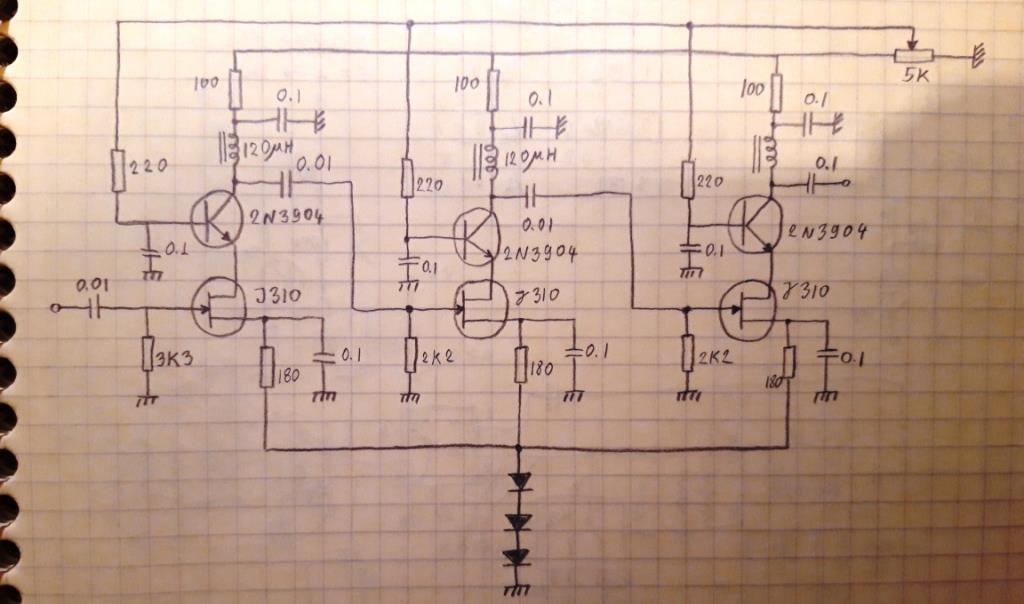 5K
100
0.1
120μH
0.01
220
2N3904
0.1
0.01
J310
3K3
180
0.1
100
0.1
120μH
0.01
220
2N3904
0.1
J310
2K2
180
0.1
100
0.1
0.1
220
2N3904
0.1
J310
2K2
180
0.1